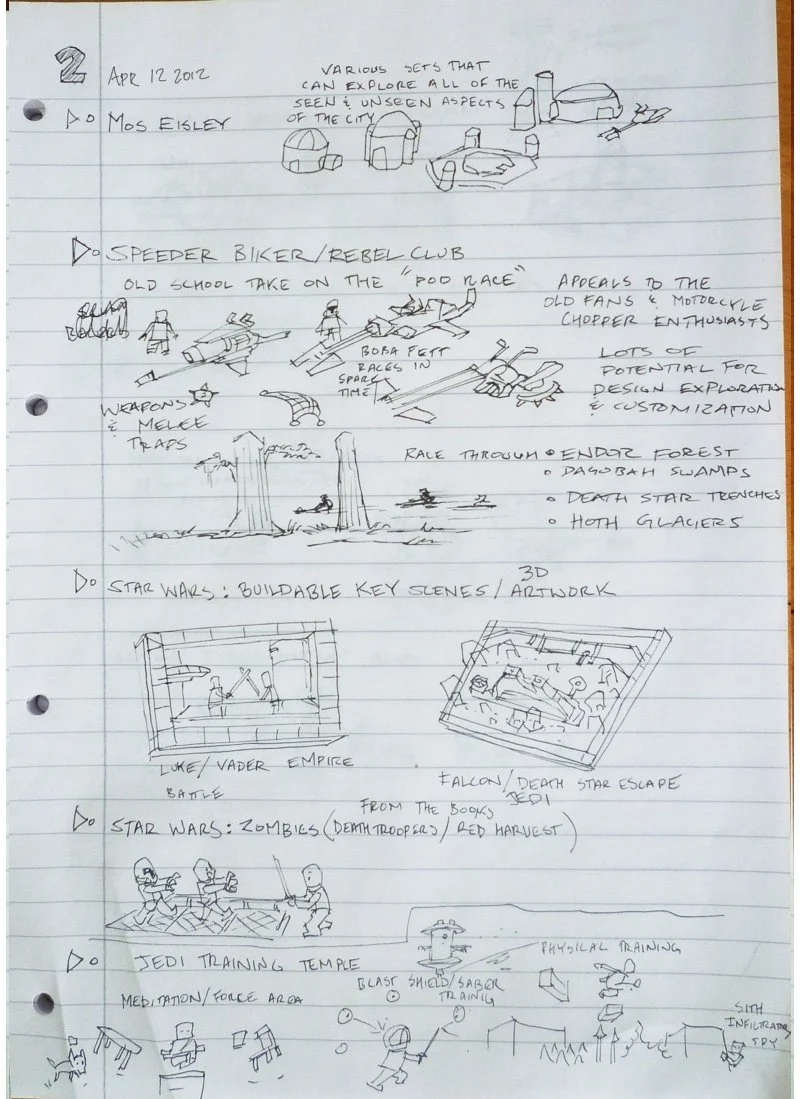 2 APR 12 2012
VARIOUS SETS THAT
CAN EXPLORE ALL OF THE
SEEN & UNSEEN ASPECTS
OF THE CITY
MOS EISLEY
SPEEDER BIKER/REBEL CLUB
OLD SCHOOL TAKE ON THE "POD RACE"
APPEALS TO THE
OLD FANS & MOTORCYLE
CHOPPER ENTHUSIASTS
BOBA FETT
RACES IN
SPARE
TIME
LOTS OF
POTENTIAL FOR
DESIGN EXPLORATION
& CUSTOMIZATION
WEAPONS
& MELEE
TRAPS
RACE THROUGH • ENDOR FOREST
• DAGOBAH SWAMPS
• DEATH STAR TRENCHES
• HOTH GLACIERS
STAR WARS: BUILDABLE KEY SCENES/3D ARTWORK
LUKE/VADER EMPIRE
BATTLE
FALCON/DEATH STAR ESCAPE
JEDI
FROM THE BOOKS
STAR WARS: ZOMBIES (DEATH TROOPERS/RED HARVEST)
JEDI TRAINING TEMPLE
PHYSICAL TRAINING
BLAST SHIELD/SABER
TRAINIG
MEDITATION/FORCE AREA
SITH
INFILTRATOR
SPY